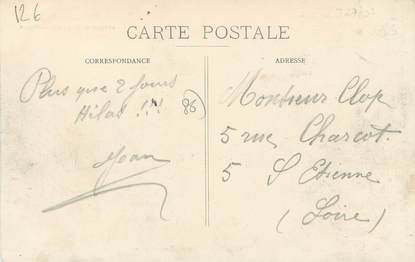 126
CARTE POSTALE
CORRESPONDANCE
Plus que 2 jours
Hilas !!!
86
Jean
ADRESSE
Monsieur Clop
5 rue Charcot.
5 St Etienne
(Loire)